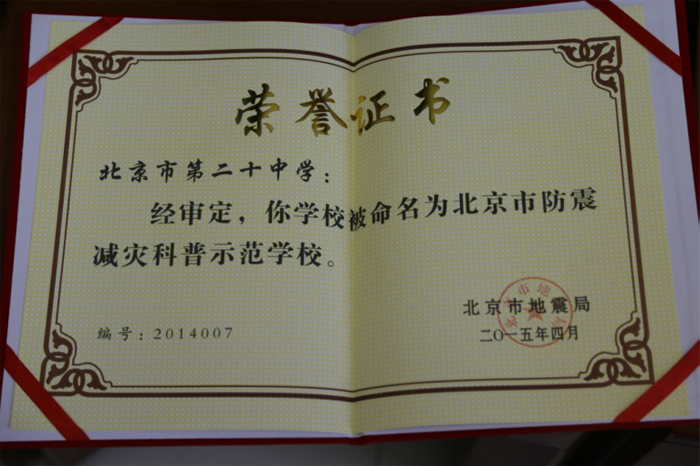 荣誉证书
北京市第二十中学：
经审定，你学校被命名为北京市防震
减灾科普示范学校。
北京市地震局
编号：2014007
二〇一五年四月